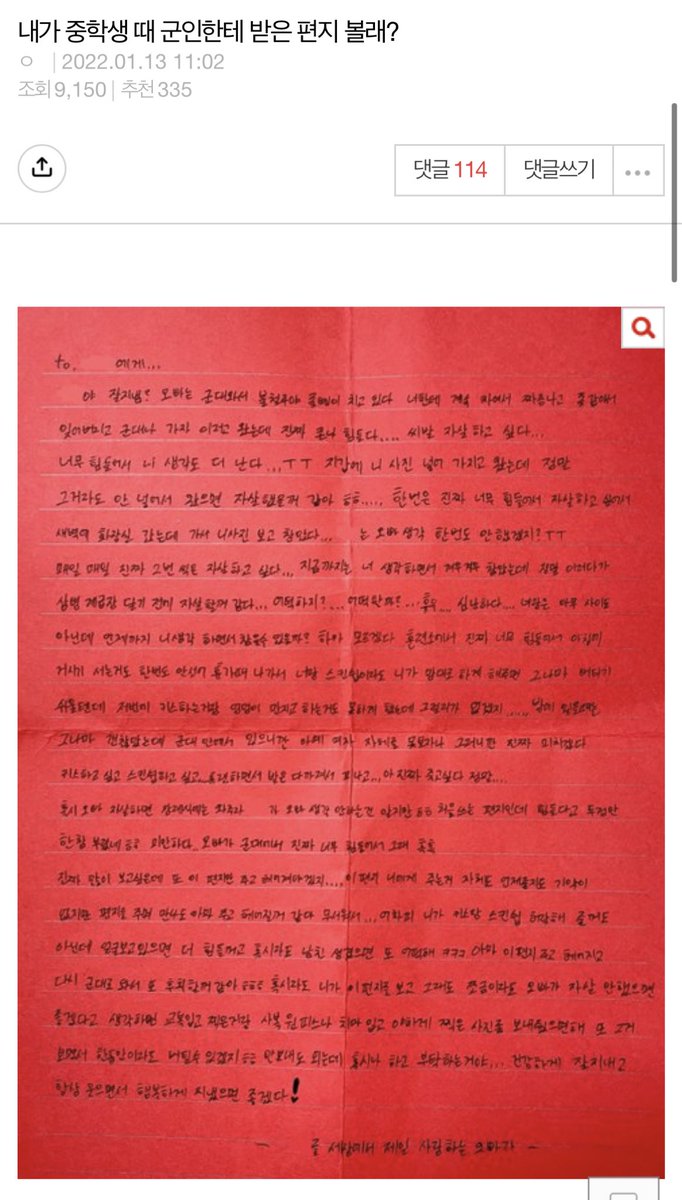 내가 중학생 때 군인한테 받은 편지 볼래?
ㅇ | 2022.01.13 11:02
조회 9,150 | 추천 335
댓글 114 댓글쓰기
to. 에게...
야 잘지냄? 오빠는 군대와서 치고 있다 너한테 계속 짜증나고
잊어버리고 군대나 가자 이러고 왔는데 진짜 존나 힘들다.... 씨발 자살 하고 싶다...
너무 힘들어서 니 생각도 더 난다...ㅜㅜ 지갑에 니 사진 넣어 가지고 왔는데 정말
그거라도 안 넣어서 왔으면 자살했을꺼 같아 ..., 한번은 진짜 너무 힘들어서 자살하고 싶어서
새벽에 화장실 갔는데 가서 니사진 보고 참았다... 는 오빠생각 한번도 안했겠지?ㅜㅜ
매일 매일 진짜 그번 씩은 자살하고 싶다... 지금까지는 너 생각하면서 겨우겨우 참았는데 정말 이러다가
상병 계급장 달기 전에 자살할꺼 같다... 어떡하지?... 어떡할까?... 심난하다.... 너랑은 아무 사이도
아닌데 언제까지 니생각 하면서 참을수 있을까? 하아 모르겠다 훈련소에서 진짜 너무 힘들어서 아침에
거시기 서는거도 한번도 안섰어 휴가때 나가서 너랑 스킨쉽이라도 니가 맘대로 하게 해주면 그나마 버티기
쉬울텐데 저번에 키스하는거랑 만지고 하는거도 못하게 했는데 그럴리가 없겠지.....
그나마 괜찮았는데 군대 안에서 있으니깐 아예 여자 자체를 못보거나 그러니깐 진짜 미치겠다
키스하고 싶고 스킨쉽하고 싶고.. 훈련하면서 발은 다까져서 피나고... 아 진짜 죽고싶다 정말....
혹시 오빠 자살하면 장례식에는 와주라 가 오빠 생각 안하는건 알지만 처음쓰는 편지인데 힘들다고 투정만
한참 부렸네 미안하다.. 오빠가 군대에서 진짜 너무 힘들어서 그래
진짜 많이 보고싶은데 또 이 편지만 주고 헤어져야겠지.... 이 편지 너에게 주는거 자체도 언제일지도 기약이
없지만 편지를 주러 만나도 아마 주고 헤어질거 같다 무서워서... 어차피 니가 키스랑 스킨쉽 허락해 줄꺼도
아닌데 얼굴보고있으면 더 힘들꺼고 혹시라도 남친 생겼으면 또 어떡해 ㅋㅋㅋ 아마 이편지 주고 헤어지고
다시 군대로 와서 또 후회할꺼 같아 혹시라도 니가 이편지를 보고 그래도 조금이라도 오빠가 자살 안했으면
좋겠다고 생각하면 교복입고 찍은거랑 사복 원피스나 치마 입고 야하게 찍은 사진을 보내줬으면해 또 그거
보면서 한동안이라도 버틸수 있겠지 안보내도 되는데 혹시나 하고 부탁하는거야... 건강하게 잘지내고
항상 웃으면서 행복하게 지냈으면 좋겠다!
- 세상에서 제일 사랑하는 오빠가 -